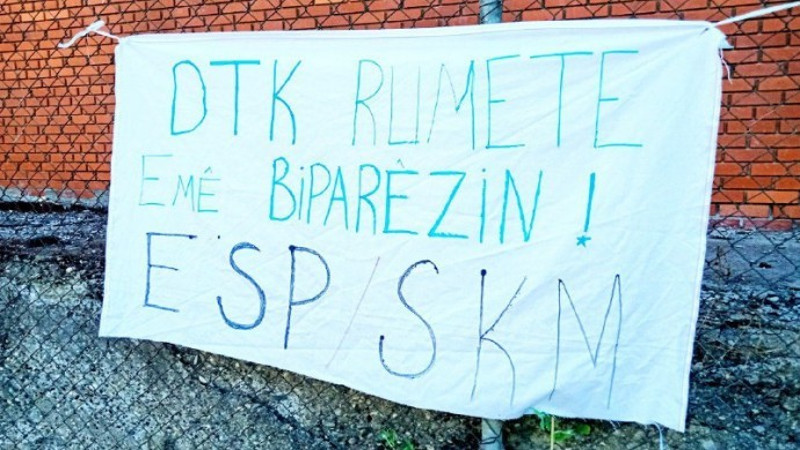 DTK RUMETE
EMÊ BiPARÊZiN !
ESP/SKM